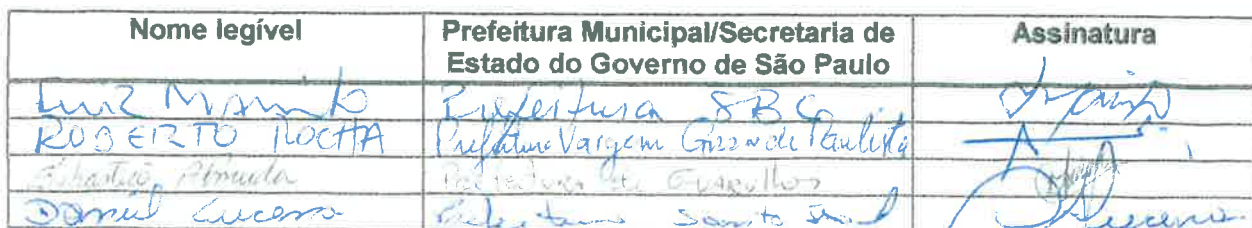 Nome legível Prefeitura Municipal/Secretaria de Estado do Governo de São Paulo Assinatura
Luiz Marinho Prefeitura SBC
ROBERTO ROCHA Prefeitura Vargem Grande Paulista
Sebastião Almeida Prefeitura de Guarulhos
Daniel Lucena Prefeitura Lucena